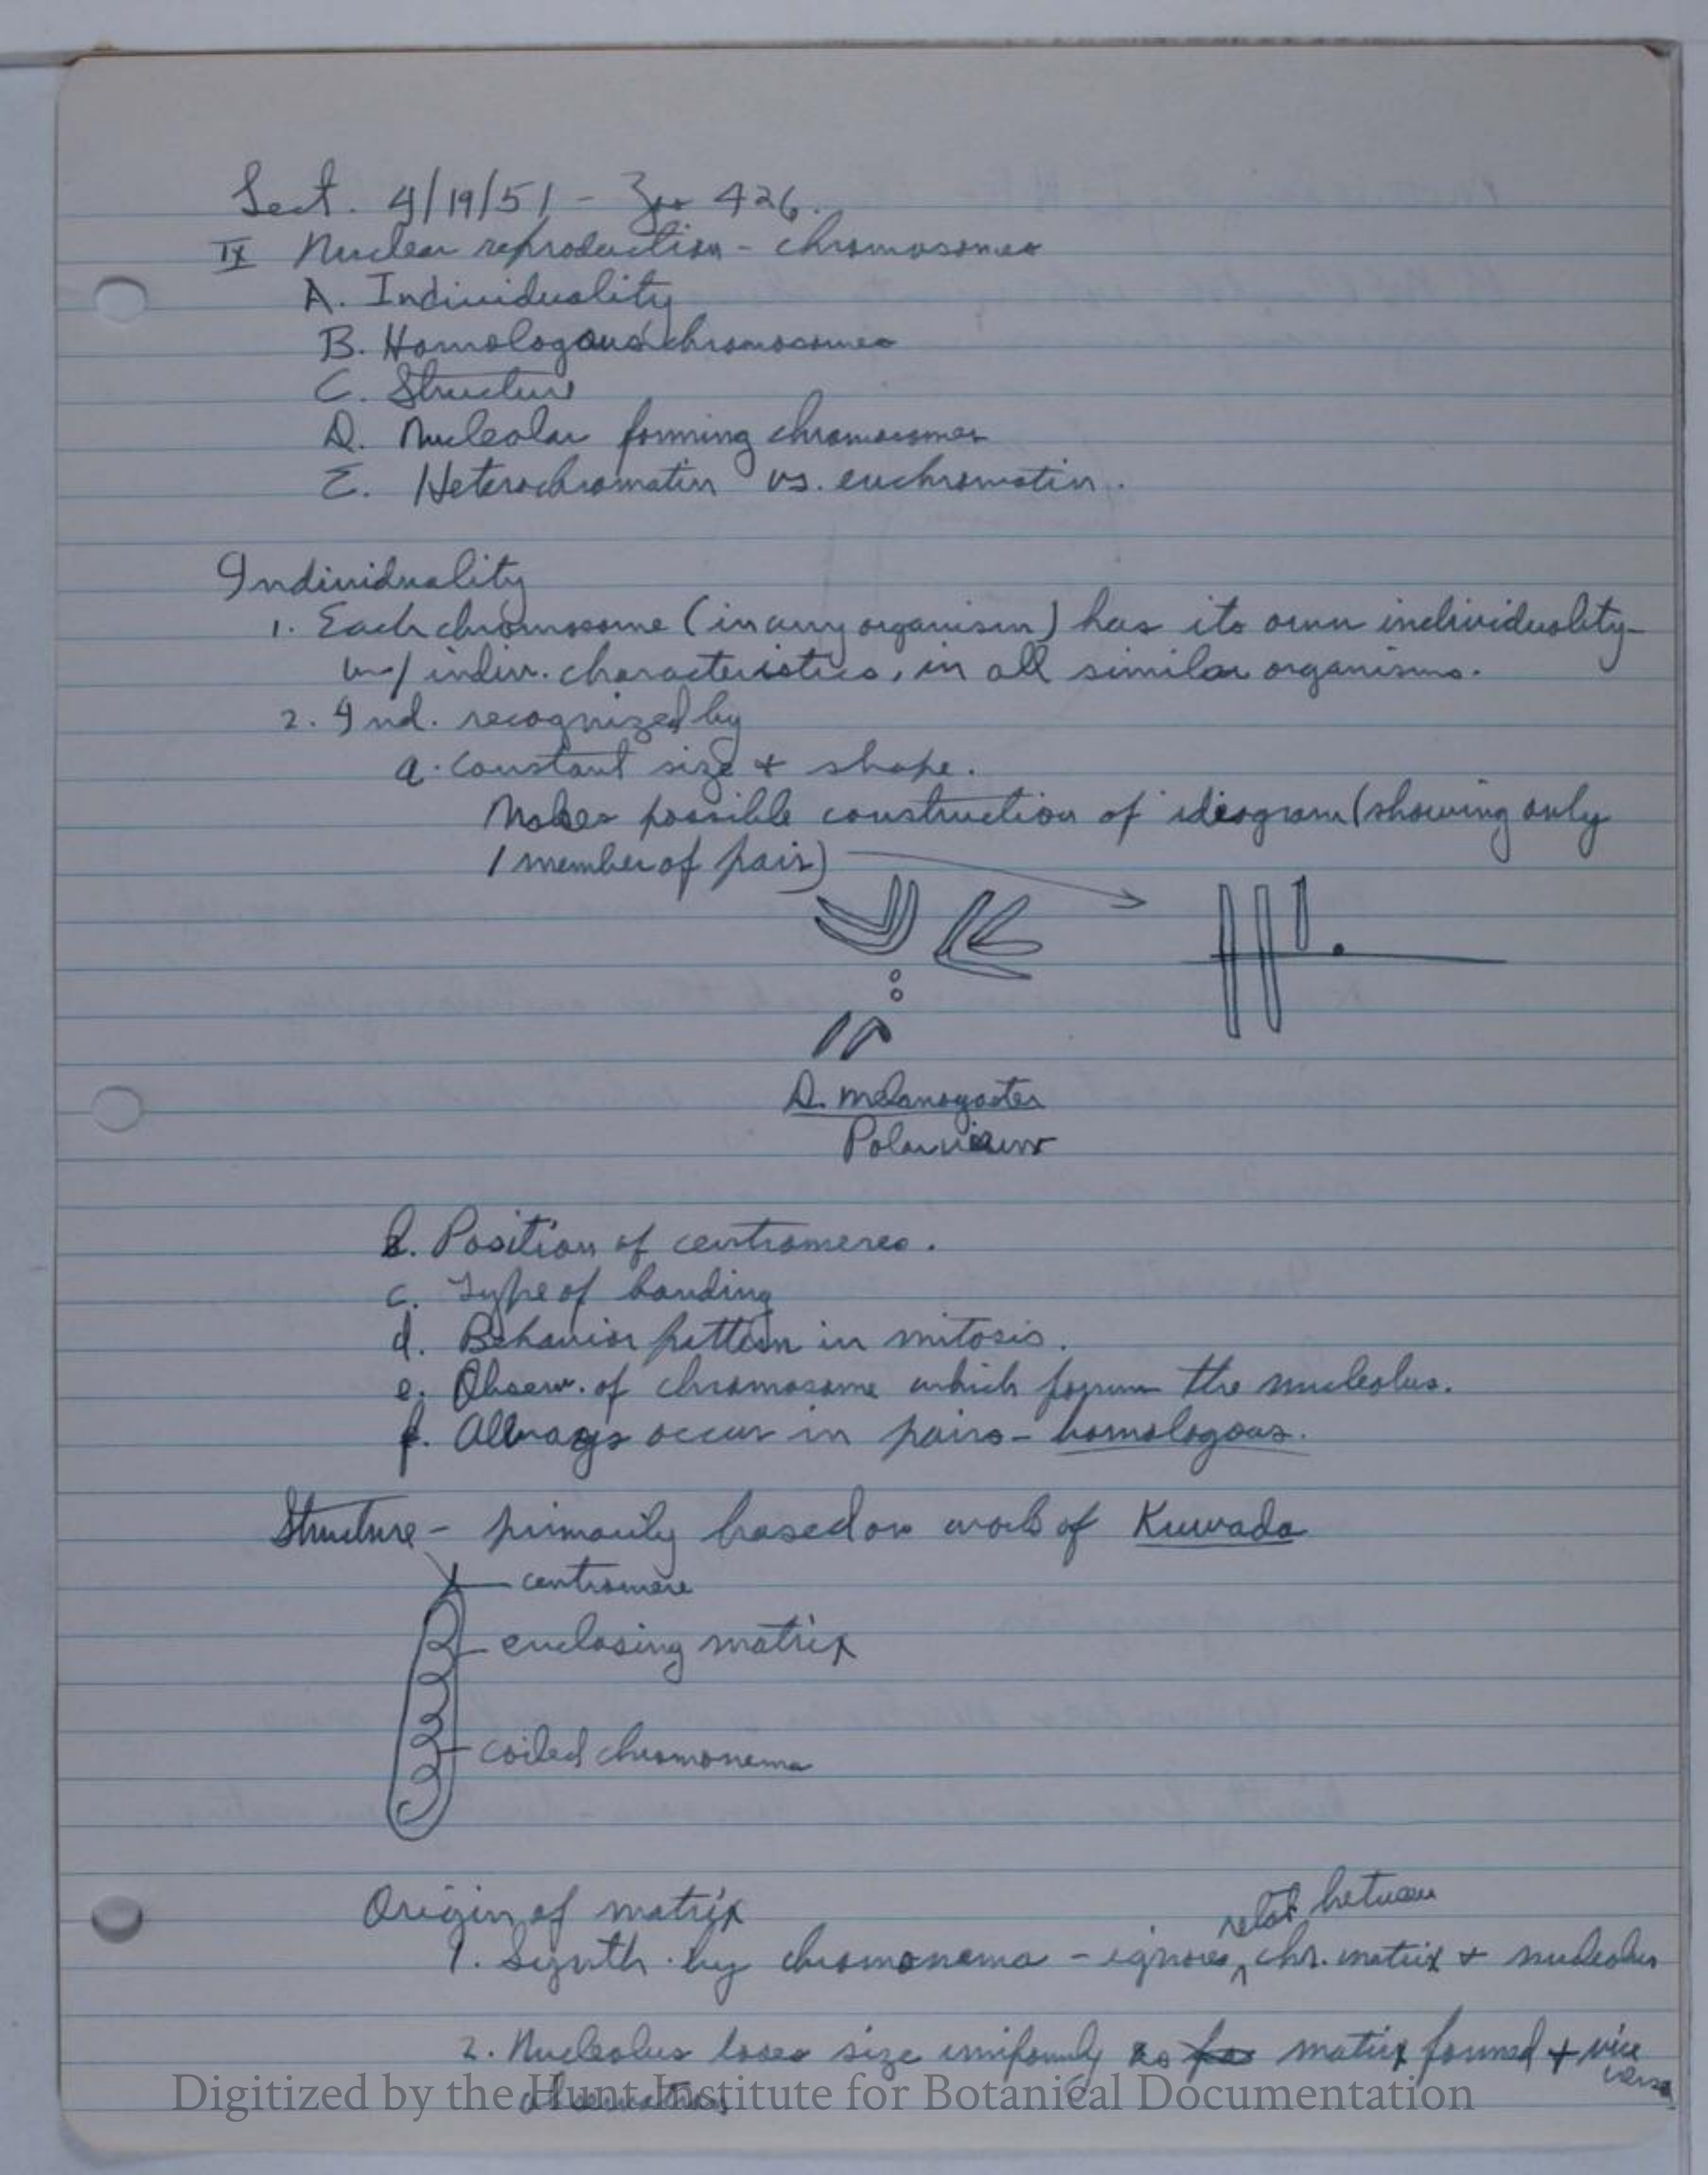 Lect. 4/19/51 - Zoo 426.
IX Nuclear reproduction - chromosomes
A. Individuality
B. Homologous chromosomes
C. Structure
D. Nucleolar forming chromosomes
E. Heterochromatin vs. euchromatin.
Individuality
1. Each chromosome (in any organism) has its own individuality -
w/ indiv. characteristics, in all similar organisms.
2. Ind. recognized by
a. Constant size + shape.
Makes possible construction of ideogram (showing only
1 member of pair)
D. melanogaster
Polar view
b. Position of centromeres.
c. Type of banding
d. Behavior pattern in mitosis.
e. Observ. of chromosome which forms the nucleolus.
f. Always occur in pairs - homologous.
Structure - primarily based on work of Kuwada
centromere
enclosing matrix
coiled chromonema
Origin of matrix
relat between
1. Synth. by chromonema - ignores ^ chr. matrix + nucleolus
2. Nucleolus loses size uniformly as matrix formed + vice
versa
observations
Digitized by the Hunt Institute for Botanical Documentation